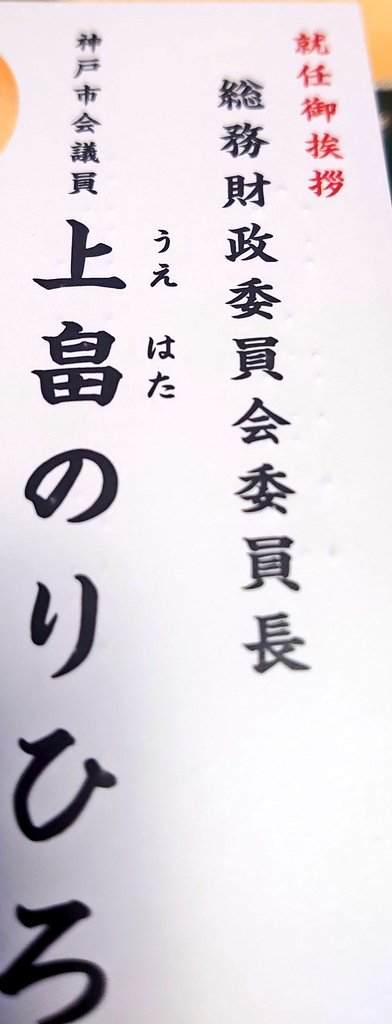 就任御挨拶
総務財政委員会委員長
神戸市会議員
うえ はた
上畠のりひろ